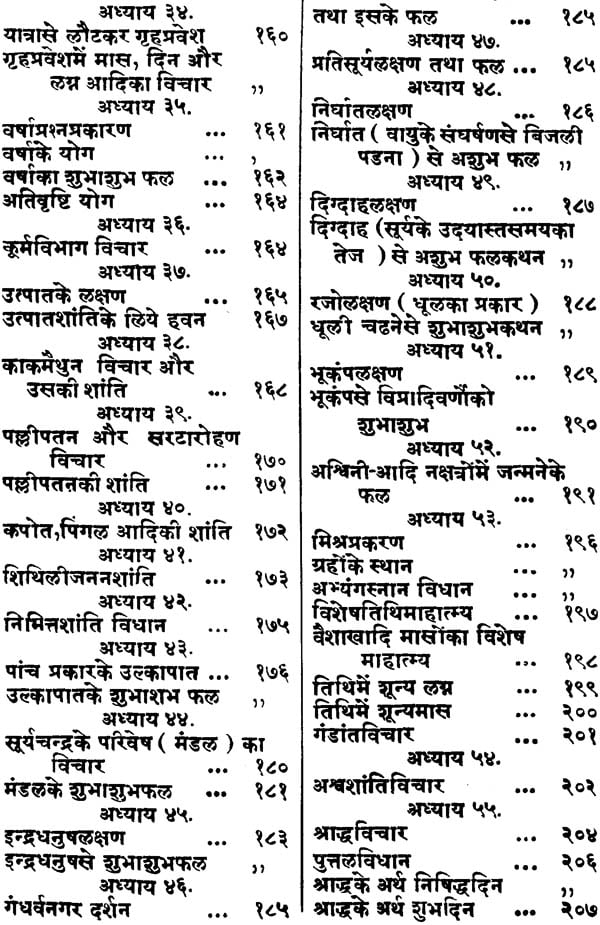 अध्याय ३४.
यात्रासे लौटकर गृहप्रवेश १६०
गृहप्रवेशमें मास, दिन और
लग्न आदिका विचार ,,
अध्याय ३५.
वर्षाप्रश्नप्रकारण ... १६१
वर्षाके योग ... ,
वर्षाका शुभाशुभ फल ... १६२
अतिवृष्टि योग ... १६४
अध्याय ३६.
कूर्मविभाग विचार ... १६४
अध्याय ३७.
उत्पातके लक्षण ... १६५
उत्पातशांतिके लिये हवन १६७
अध्याय ३८.
काकमैथुन विचार और
उसकी शांति ... १६८
अध्याय ३९.
पल्लीपतन और सरटारोहण
विचार ... १७०
पल्लीपतनकी शांति ... १७१
अध्याय ४०.
कपोत,पिंगल आदिकी शांति १७२
अध्याय ४१.
शिथिलीजननशांति ... १७३
अध्याय ४२.
निमित्तशांति विधान ... १७५
अध्याय ४३.
पांच प्रकारके उल्कापात ... १७६
उल्कापातके शुभाशभ फल ,,
अध्याय ४४.
सूर्यचन्द्रके परिवेष ( मंडल ) का
विचार ... १८०
मंडलके शुभाशुभफल ... १८१
अध्याय ४५.
इन्द्रधनुषलक्षण ... १८३
इन्द्रधनुषसे शुभाशुभफल ,,
अध्याय ४६.
गंधर्वनगर दर्शन ... १८५
तथा इसके फल ... १८५
अध्याय ४७.
प्रतिसूर्यलक्षण तथा फल ... १८५
अध्याय ४८.
निर्घातलक्षण ... १८६
निर्घात ( वायुके संघर्षणसे बिजली
पडना ) से अशुभ फल ,,
अध्याय ४९.
दिग्दाहलक्षण ... १८७
दिग्दाह (सूर्यके उदयास्तसमयका
तेज ) से अशुभ फलकथन ,,
अध्याय ५०.
रजोलक्षण ( धूलका प्रकार ) १८८
धूली चढनेसे शुभाशुभकथन ,,
अध्याय ५१.
भूकंपलक्षण ... १८९
भूकंपसे विप्रादिवर्णोंको
शुभाशुभ ... १९०
अध्याय ५२.
अश्विनी-आदि नक्षत्रोंमें जन्मनेके
फल ... १९१
अध्याय ५३.
मिश्रप्रकरण ... १९६
ग्रहोंके स्थान ... ,,
अभ्यंगस्नान विधान ... ,,
विशेषतिथिमाहात्म्य ... १९७
वैशाखादि मासोंका विशेष
माहात्म्य ... १९८
तिथिमें शून्य लग्न ... १९९
तिथिमें शून्यमास ... २००
गंडांतविचार ... २०१
अध्याय ५४.
अश्वशांतिविचार ... २०२
अध्याय ५५.
श्राद्धविचार ... २०४
पुत्तलविधान ... २०६
श्राद्धके अर्थ निषिद्धदिन ,,
श्राद्धके अर्थ शुभदिन ... २०७